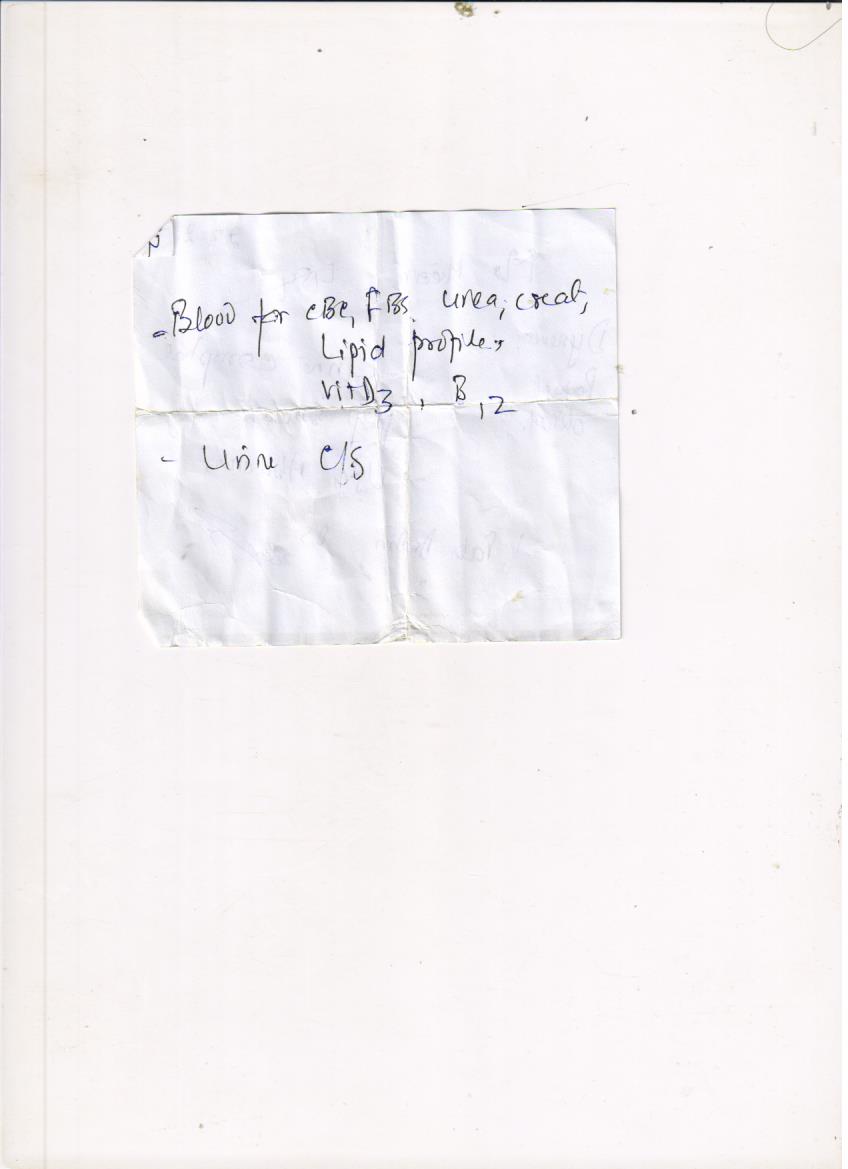 N
- Blood for CBC, FBS, urea, creat,
Lipid profile,
vit D3, B12
- Urine C/S